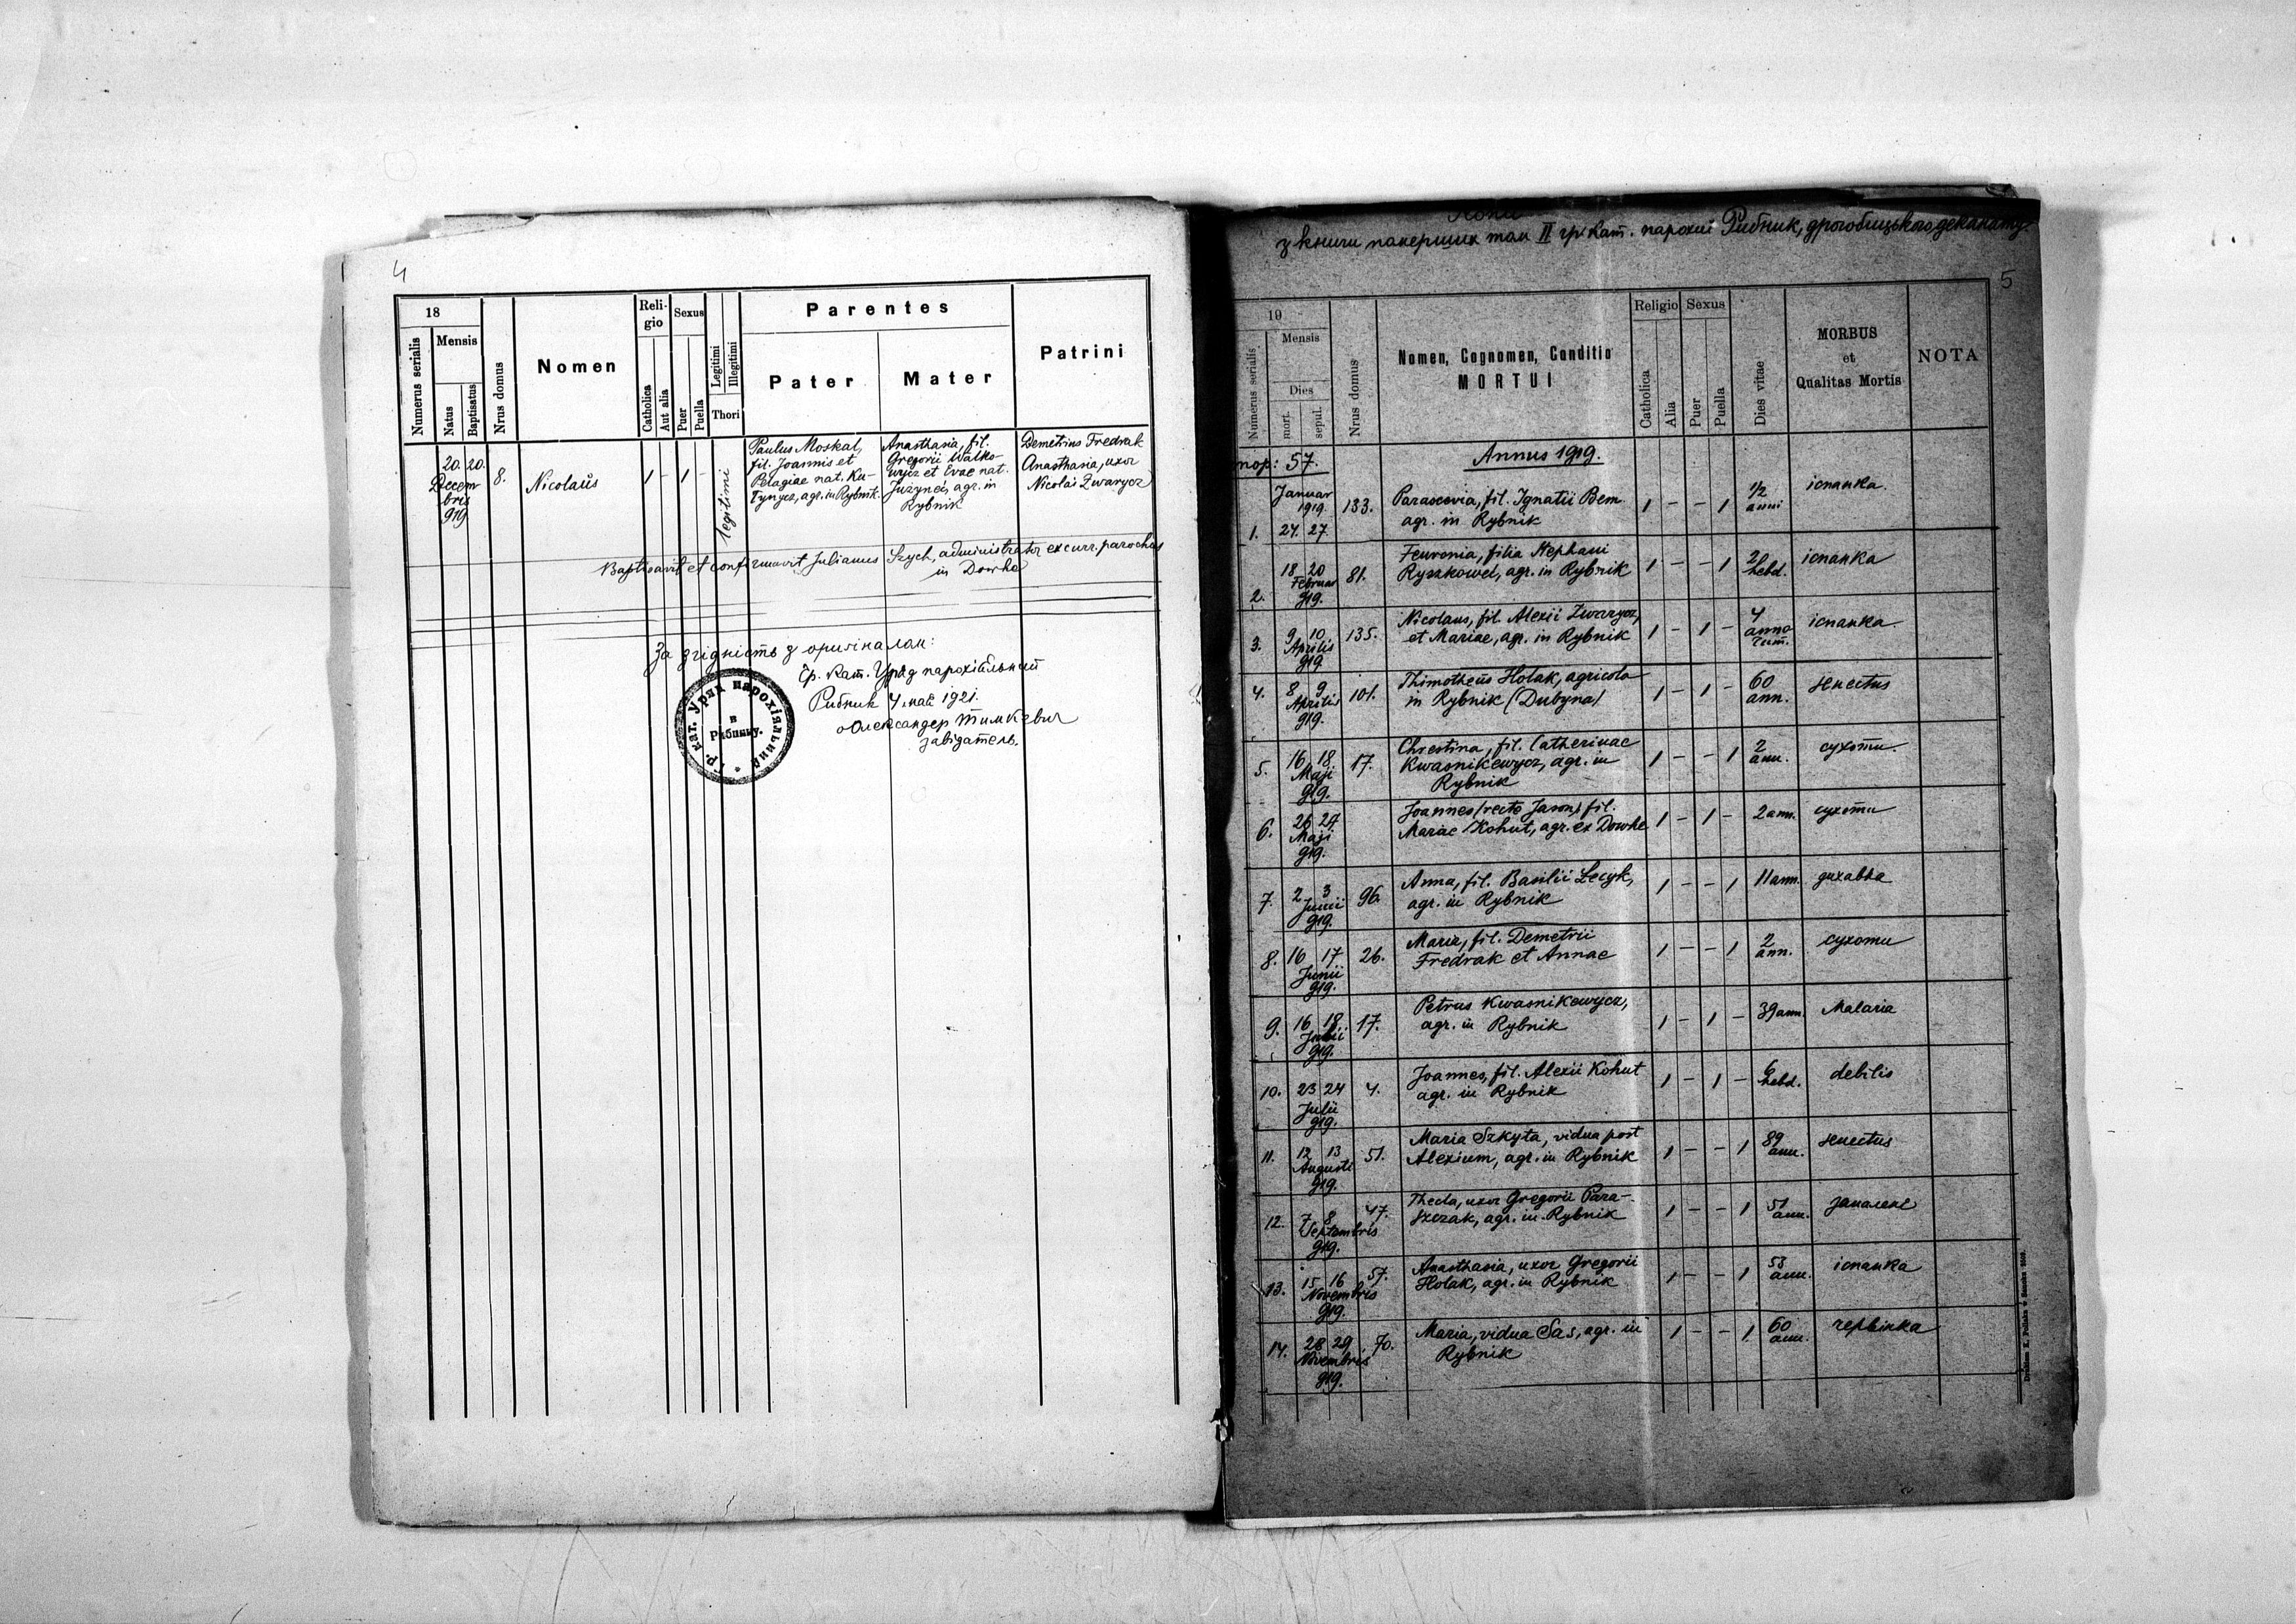 4
18
Numerus serialis
Mensis
Natus
Baptisatus
Nrus domus
Nomen
Religio
Catholica
Aut alia
Sexus
Puer
Puella
Legitimi
Illegitimi
Thori
Parentes
Pater
Mater
Patrini
20. 20.
Decem-
bris
919.
8.
Nicolaus
1 - 1 -
legitimi
Paulus Moskal,
fil. Joannis et
Pelagiae nat. Ku-
tynycz, agr. in Rybnik.
Anasthasia, fil.
Gregorii Walko-
wycz et Evae nat.
agr. in
Rybnik
Demetrius Fredrak
Anasthasia, uxor
Nicolai Zwarycz
Baptisavit et confirmavit Julianus Szych, administrator excurr. parochus
in Dowhe
За згідність з оригіналом:
Гр. кат. Уряд парохіяльний
Рибник 4 мая 1921.
Олександер Тимкевич
завідатель.
Гр. кат. Уряд парохіяльний
в
Рибнику.
5
з книги памерших том II гр. кат. парохиї Рибник, дрогобицького деканату
19
Numerus serialis
Mensis
Dies
mort.
sepul.
Nrus domus
Nomen, Cognomen, Conditio
MORTUI
Religio
Catholica
Alia
Sexus
Puer
Puella
Dies vitae
MORBUS
et
Qualitas Mortis
NOTA
пор: 57.
Annus 1919.
1. Januar 1919. 24. 27. 133. Parascevia, fil. Ignatii Bem 1 - - 1 1/2 anni іспанка.
agr. in Rybnik
2. 18 20 Februar 919. 81. Feuronia, filia Stephani 1 - - 1 2 hebd. іспанка
Ryszkowei, agr. in Rybnik
3. 9 10. Aprilis 919. 135. Nicolaus, fil. Alexii Zwarycz, 1 - 1 - 4 anno rum. іспанка
et Mariae, agr. in Rybnik
4. 8 9 Aprilis 919. 101. Thimotheus Holak, agricola 1 - 1 - 60 ann. senectus
in Rybnik (Dubyna)
5. 16 18 Maji 919. 17. Chrestina, fil. Catherinae 1 - - 1 2 ann. сухоти.
Kwasnikewycz, agr. in
Rybnik
6. 26 27 Maji 919. Joannes (recte Jason) fil. 1 - 1 - 2 ann. сухоти
Mariae Kohut, agr. ex Dowhe
7. 2 3 Junii 919. 96. Anna, fil. Basilii Lecyk, 1 - - 1 11 ann. дихавка
agr. in Rybnik
8. 16 17 Junii 919. 26. Maria, fil. Demetrii 1 - - 1 2 ann. сухоти
Fredrak et Annae
9. 16 18. 919. 17. Petrus Kwasnikewycz, 1 - 1 - 39 ann. Malaria
agr. in Rybnik
10. 23 24 Julii 919. 4. Joannes, fil. Alexii Kohut 1 - 1 - 6 hebd. debilis
agr. in Rybnik
11. 12 13 Augusti 919. 51. Maria Szkyta, vidua post 1 - - 1 89 ann. senectus
Alexium, agr. in Rybnik
12. 7 8 Septembris 919. 47. Thecla, uxor Gregorii Para- 1 - - 1 51 ann. запалене
szczak, agr. in Rybnik
13. 15 16 Novembris 919. 57. Anasthasia, uxor Gregorii 1 - - 1 53 ann. іспанка
Holak, agr. in Rybnik
14. 28 29 Novembris 919. 70. Maria, vidua Sas, agr. in 1 - - 1 60 ann. червінка
Rybnik